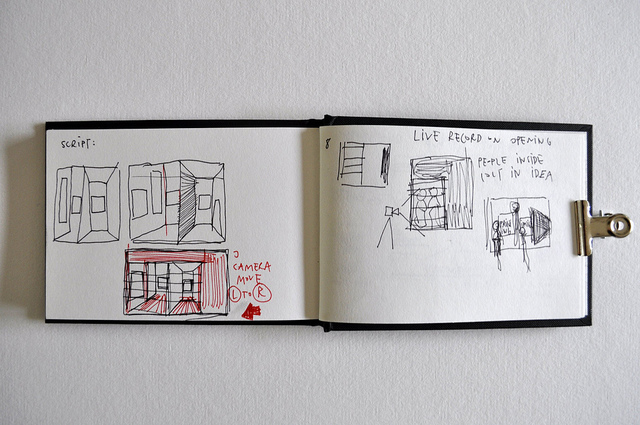 SCRIPT:
CAMERA
MOVE
L TO R
8
LIVE RECORD ON OPENING
PEOPLE INSIDE
IN IDEA